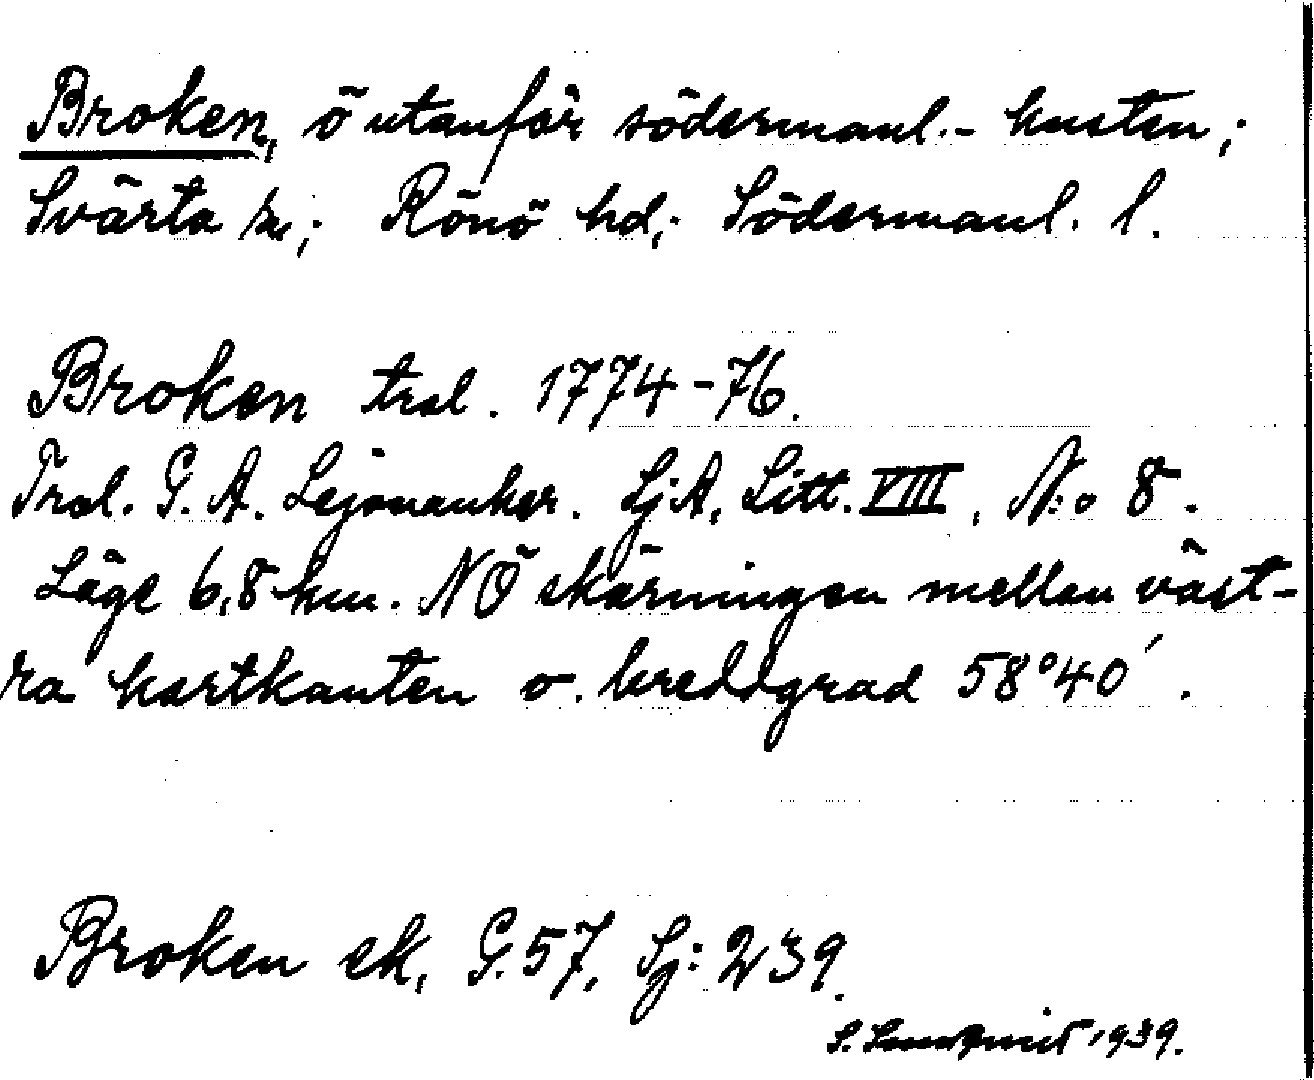 Broken, ö utanför södermanl.-kusten;
Svärta sn; Rönö hd; Södermanl. l.
Broken trol. 1774-76.
Trol. G. A. Lejonanker. Sj A, Litt. VIII, N:o 8.
Läge 6,8 km. NÖ skärningen mellan väst-
ra kartkanten o. breddgrad 58°40'.
Broken ek, G. 57, Sj: 239.
S. 1939.